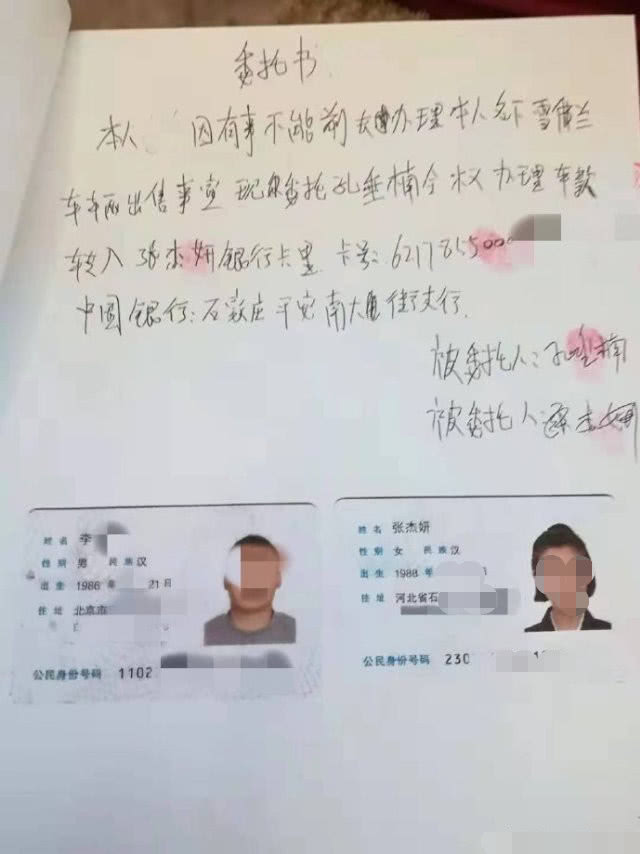 委托书
本人 因有事不能前去办理本人名下雪佛兰
车辆出售事宜 现委托孔垂楠全权办理车款
转入张杰妍银行卡里 卡号:621785500
中国银行:石家庄平安南大街支行.
被委托人:孔垂楠
被委托人:张杰妍
姓名 李
性别 男 民族 汉
出生 1986 年 21 日
住址 北京市
公民身份号码 1102
姓名 张杰妍
性别 女 民族 汉
出生 1988 年
住址 河北省石
公民身份号码 230